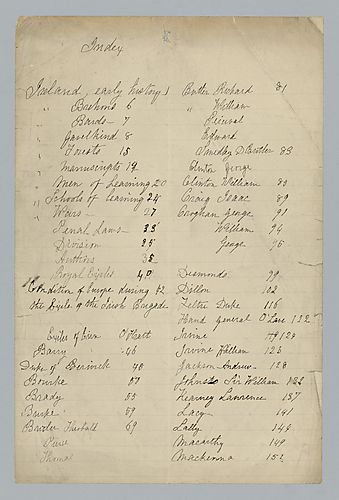 Index
Ireland, early history 1
" Brehons 6
" Bards 7
" Gavelkind 8
" Forests 15
" Manuscripts 19
" Men of Learning 20
" Schools of Learning 24
" Wars 27
" Penal Laws 33
Division 35
Authors 38
Royal Exiles 40
Condition of Europe during 42
the Exile of the Irish Brigade
Exiles of Erin
Barry 46
Duke of Berwick 48
Bourke 51
Brady 55
Burke 59
Bowder Theobald 69
Pierce
Thomas
Butler Richard 81
" William
Percival
Edward
Smedley D. Butler 83
Clinton George
Clinton William 89
Craig Isaac 89
Croghan George 91
William 94
George 95
Desmonds 99
Dillon 102
Feltre Duke 116
Hand General
Irvine
Irvine William 123
Jackson Andrew 128
Johnson Sir William
Kearney Lawrence 137
Lacy 141
Lally 145
Macarthy 149
Mackenna 152